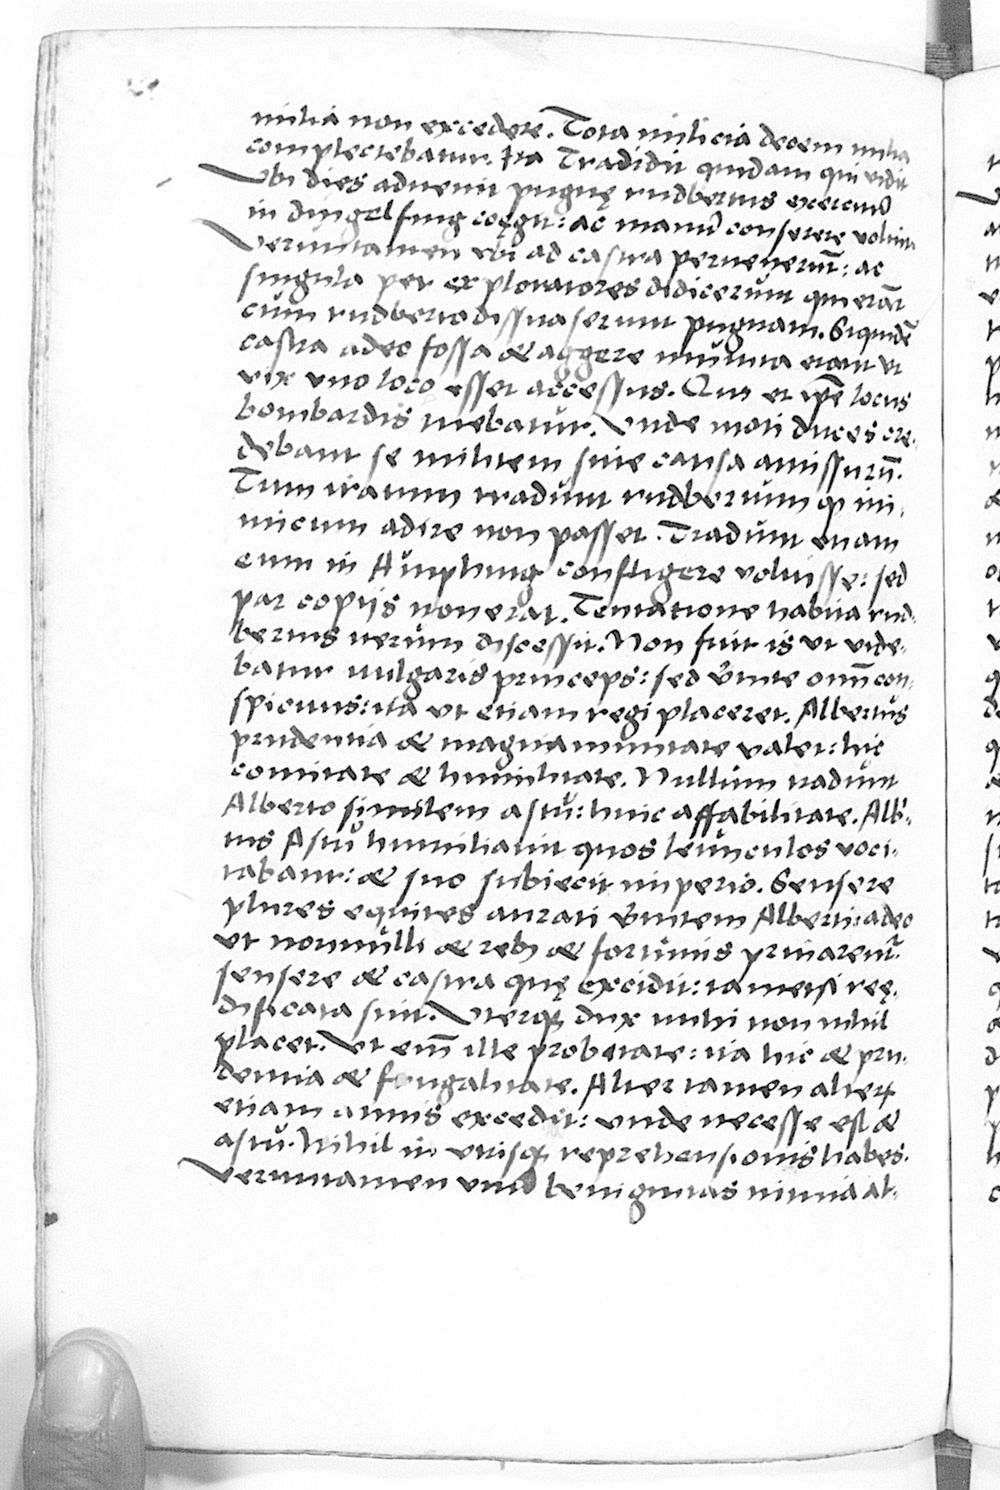 milia non excedere. Tota milicia decem milia
complectebatur. Ita Tradidit quidam qui vidit
Vbi dies aduenit pugnę rudbertus exercitū
in dingelfing coęgit: ac manū conserere voluit
Veruntamen vbi ad castra peruenerūt: ac
singula per exploratores didicerūnt qui erāt
cum rudberto dissuaserunt pugnam. Siquidē
castra adeo fossa & aggere munita erant vt
vix vno loco esset accessus. Qui et ipse locus
bombardis tuebatur. Vnde moti duces cre-
debant se militem sine causa amissurū.
Tum iratum tradunt rudbertum qd ini-
micum adire non posset. Tradunt etiam
eum in confligere voluisse: sed
par copijs non erat. Tentatione habita rud-
bertus uerum discessit. Non fuit is vt vide-
batur uulgaris princeps: sed omni con-
spicuus: ita vt etiam regi placeret. Albertus
prudentia & magnanimitate valet: hic
comitate & humilitate. Nullum tradunt
Alberto similem astu: huic affabilitate. Alb-
tus Astu humiliauit quos leunculos voci-
tabant: & suo subiecit imperio. Sensere
plures equites aurati Alberti: adeo
vt nonnulli & reb9 & fortunis priuarent.
sensere & castra quę excidit: tametsi reę-
dificata sint. Vterq; dux mihi non nihil
placet. Vt em̄ ille probitate: ita hic & pru-
dentia & frugalitate. Alter tamen alterꝝ
etiam annis excedit: vnde necesse est &
astu. Nihil in vtrisq; reprehensionis habes.
Veruntamen benignitas nimia al-